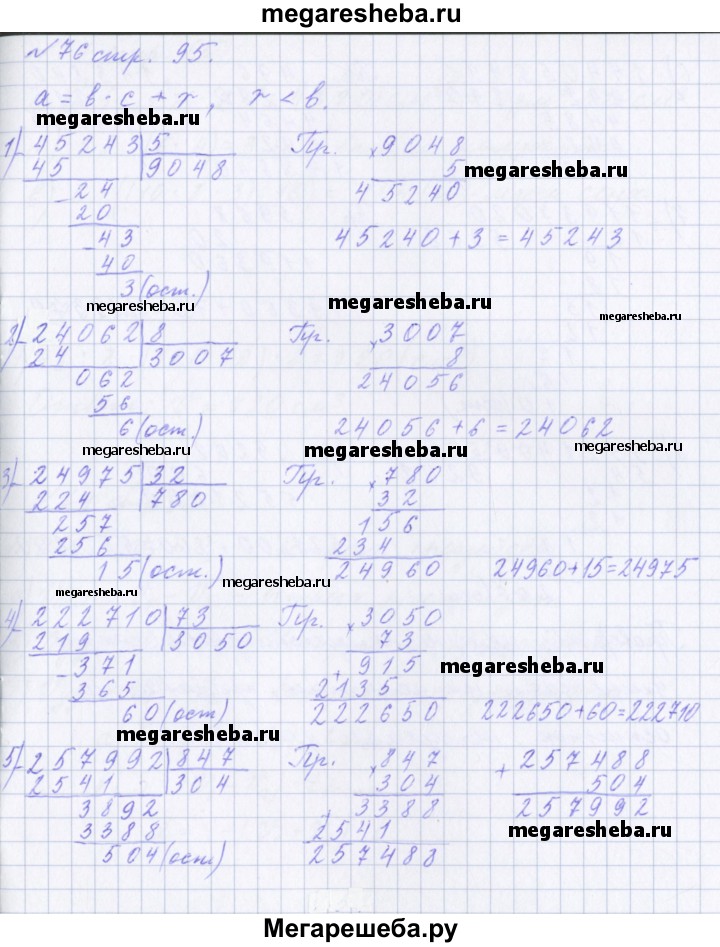 megaresheba.ru
№ 76 стр. 95.
a = b · c + r, r < b.
megaresheba.ru
1) 45243 | 5 Пр. × 9048
45 | 9048 5 megaresheba.ru
- 24 45240
20
- 43 45240 + 3 = 45243
40
3 (ост.)
megaresheba.ru megaresheba.ru
2) 24062 | 8 Пр. × 3007
24 | 3007 8
062 24056
56
6 (ост.) 24056 + 6 = 24062
megaresheba.ru megaresheba.ru megaresheba.ru
3) 24975 | 32 Пр. × 780
224 | 780 32
257 156
256 234
15 (ост.) 24960 24960+15=24975
megaresheba.ru megaresheba.ru
4) 222710 | 73 Пр. × 3050
219 | 3050 73
- 371 + 915 megaresheba.ru
365 2135
60 (ост) 222650 222650+60=222710
megaresheba.ru
5) 257992 | 847 Пр. × 847 + 257488
2541 | 304 304 504
3892 + 3388 257992
3388 2541 megaresheba.ru
504 (ост) 257488
Мегарешеба.ру